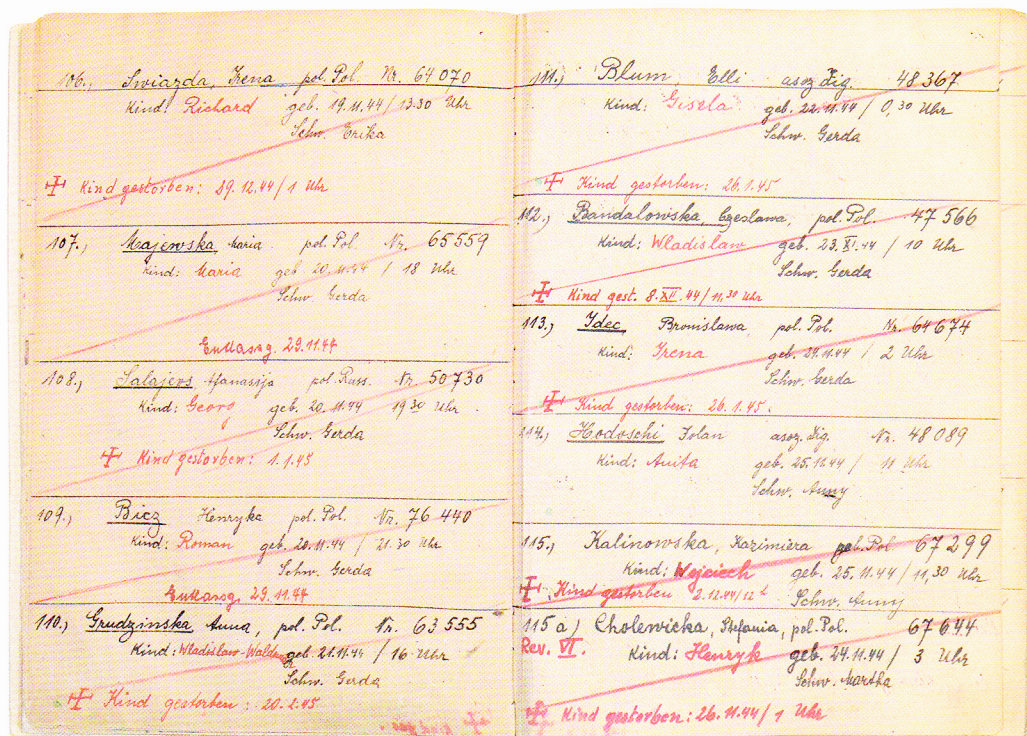 106., Swiazda, Irena pol. Pol. Nr. 64070
Kind: Richard geb. 19.11.44 / 13.30 Uhr
Schw. Erika
Kind gestorben: 29.12.44 / 1 Uhr
107., Majewska, Maria pol. Pol. Nr. 65559
Kind: Maria geb 20.11.44 / 18 Uhr
Schw. Gerda
Entlassg. 29.11.44
108., Salajevs Afanasija pol. Russ. Nr. 50730
Kind: Georg geb. 20.11.44 19 30 Uhr
Schw. Gerda
Kind gestorben: 1.1.45
109., Bicz Henryka pol. Pol. Nr. 76440
Kind: Roman geb. 20.11.44 / 21.30 Uhr
Schw. Gerda
Entlassg. 29.11.44
110.) Grudzinska Anna, pol. Pol. Nr. 63555
Kind: Wladislaw- geb. 21.11.44 / 16 Uhr
Schw. Gerda
Kind gestorben: 20.2.45
111.) Blum Elli asoz Zig. 48367
Kind: Gisela geb. 22.11.44 / 0,30 Uhr
Schw. Gerda
Kind gestorben: 26.1.45
112.) Bandalowska, Czeslawa, pol. Pol. 47566
Kind: Wladislaw geb. 23.XI.44 / 10 Uhr
Schw. Gerda
Kind gest. 8.XII.44 / 11,30 Uhr
113.) Idec Bronislawa pol. Pol. Nr. 64674
Kind: Irena geb. 24.11.44 / 2 Uhr
Schw. Gerda
Kind gestorben: 26.1.45.
114., Hodoschi Jolan asoz. Zig. Nr. 48089
Kind: Anita geb. 25.11.44 / 11 Uhr
Schw. Anny
115.) Kalinowska, Kazimiera Pol 67299
Kind: Wojciech geb. 25.11.44 / 11,30 Uhr
Kind gestorben 2.12.44/12 h Schw. Anny
115a) Cholewicka, Stefania, pol. Pol. 67644
Rev. VI. Kind: Henryk geb. 24.11.44 / 3 Uhr
Schw. Martha
Kind gestorben: 26.11.44 / 1 Uhr